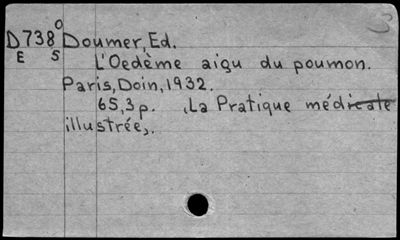 D738° Doumer, Ed.
E S L'Oedème aigu du poumon.
Paris, Doin, 1932.
65,3p. (La Pratique médicale
illustrée).